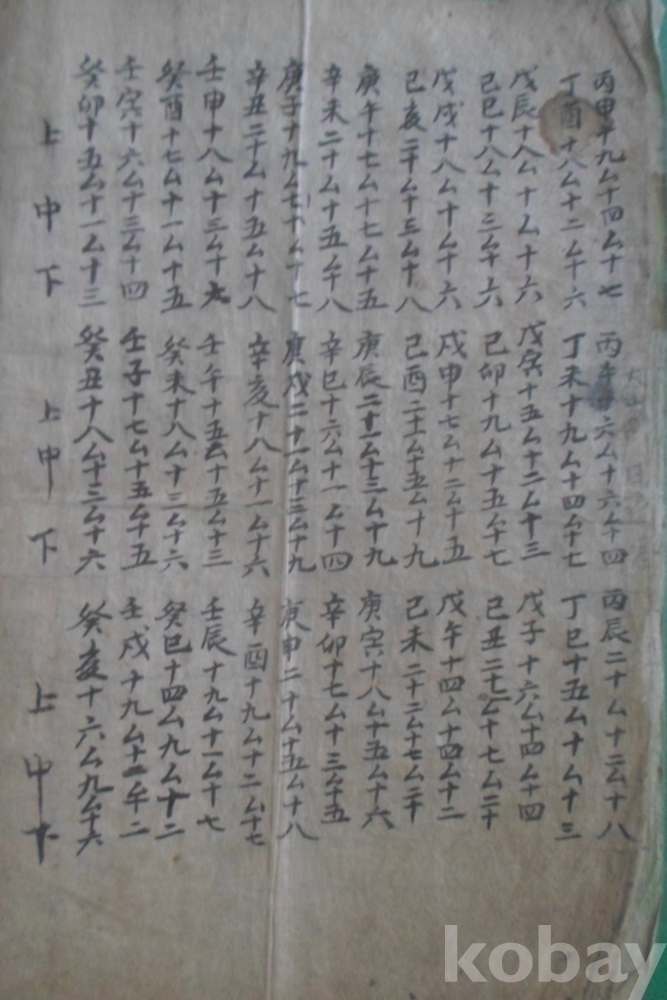 丙申十九ム十四ム十七
丁酉十八ム十二ム十六
戊辰十八ム十ム十六
己巳十八ム十三ム十六
戊戌十八ム十ム十六
己亥二十ム十三ム十八
庚午十七ム十七ム十五
辛未二十ム十五ム十八
庚子十九ム十ム十七
辛丑二十ム十五ム十八
壬申十八ム十三ム十六
癸酉十七ム十一ム十五
壬寅十六ム十三ム十四
癸卯十五ム十一ム十三
上 中 下
丙午十六ム十六ム十四
丁未十九ム十四ム十七
戊寅十五ム十二ム十三
己卯十九ム十五ム十七
戊申十七ム十二ム十五
己酉二十一ム十五ム十九
庚辰二十一ム十三ム十九
辛巳十六ム十一ム十四
庚戌二十一ム十三ム十九
辛亥十八ム十一ム十六
壬午十五ム十五ム十三
癸未十八ム十三ム十六
壬子十七ム十五ム十五
癸丑十八ム十三ム十六
上 中 下
丙辰二十ム十二ム十八
丁巳十五ム十ム十三
戊子十六ム十四ム十四
己丑二十二ム十七ム二十
戊午十四ム十四ム十二
己未二十二ム十七ム二十
庚寅十八ム十五ム十六
辛卯十七ム十三ム十五
庚申二十ム十五ム十八
辛酉十九ム十二ム十七
壬辰十九ム十一ム十七
癸巳十四ム九ム十二
壬戌十九ム十二
癸亥十六ム九ム十六
上 中 下
kobay